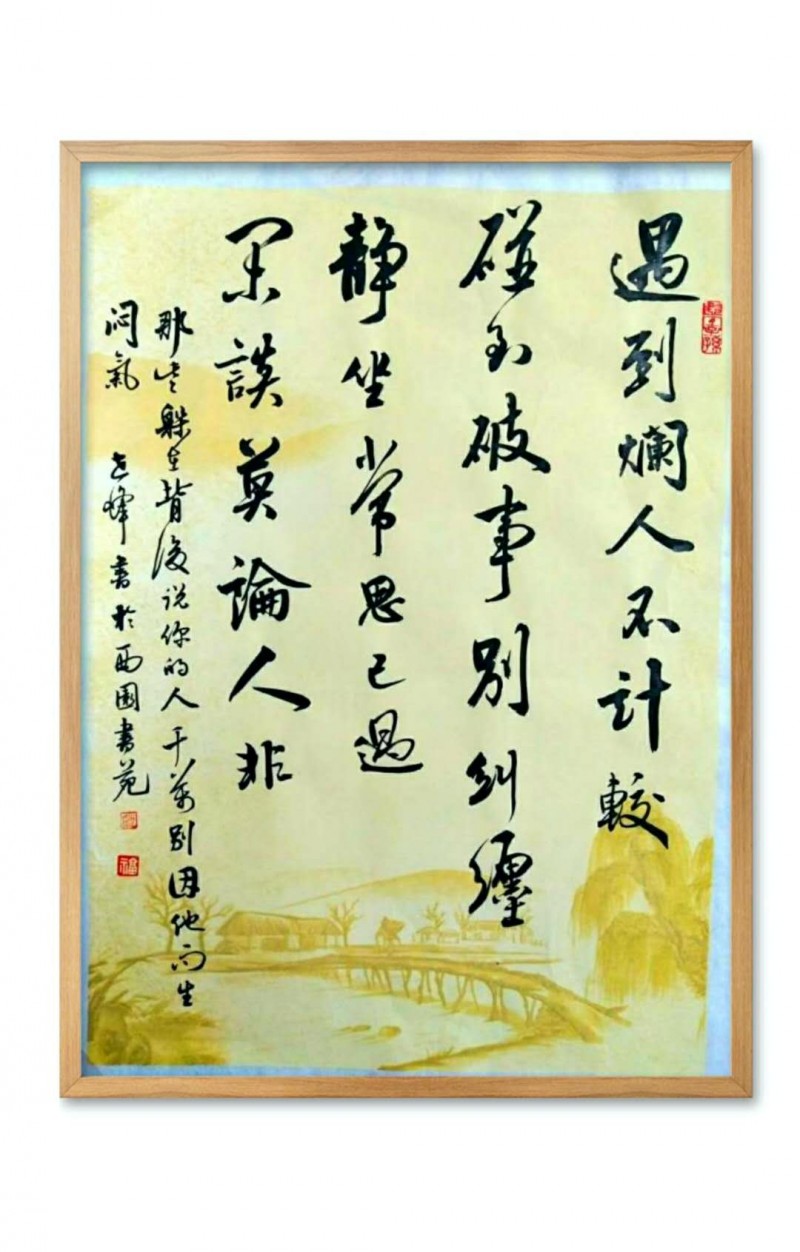 遇到爛人不計較
碰到破事別糾纏
静坐常思己過
闲談莫論人非
那些躲在背後说你的人千萬别因他而生
闷氣 峰書於西園書苑
福